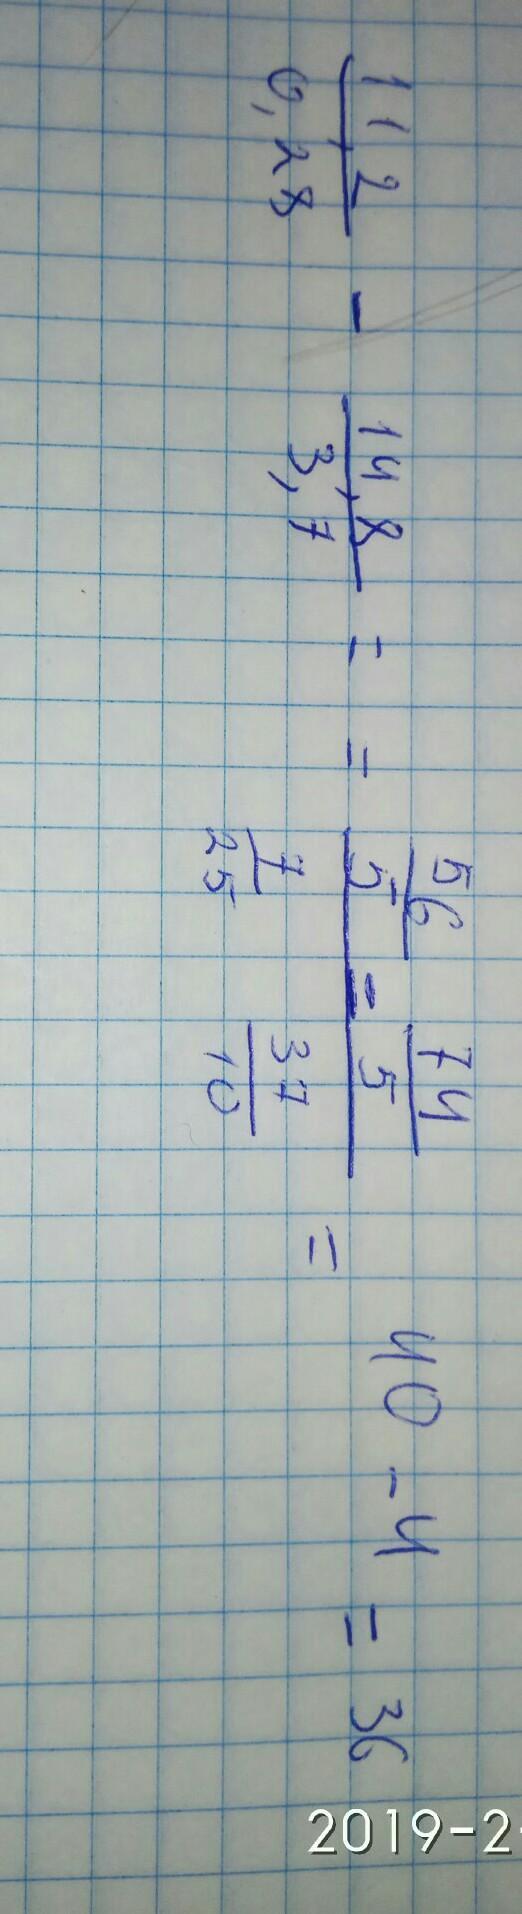 11,2/0,28 - 14,8/3,7 = = (56/5)/(7/25) = (74/5)/(37/10) = 40 - 4 = 36
2019-2-